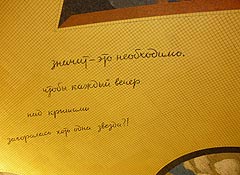 значит – это необходимо,
чтобы каждый вечер
над крышами
загоралась хоть одна звезда?!